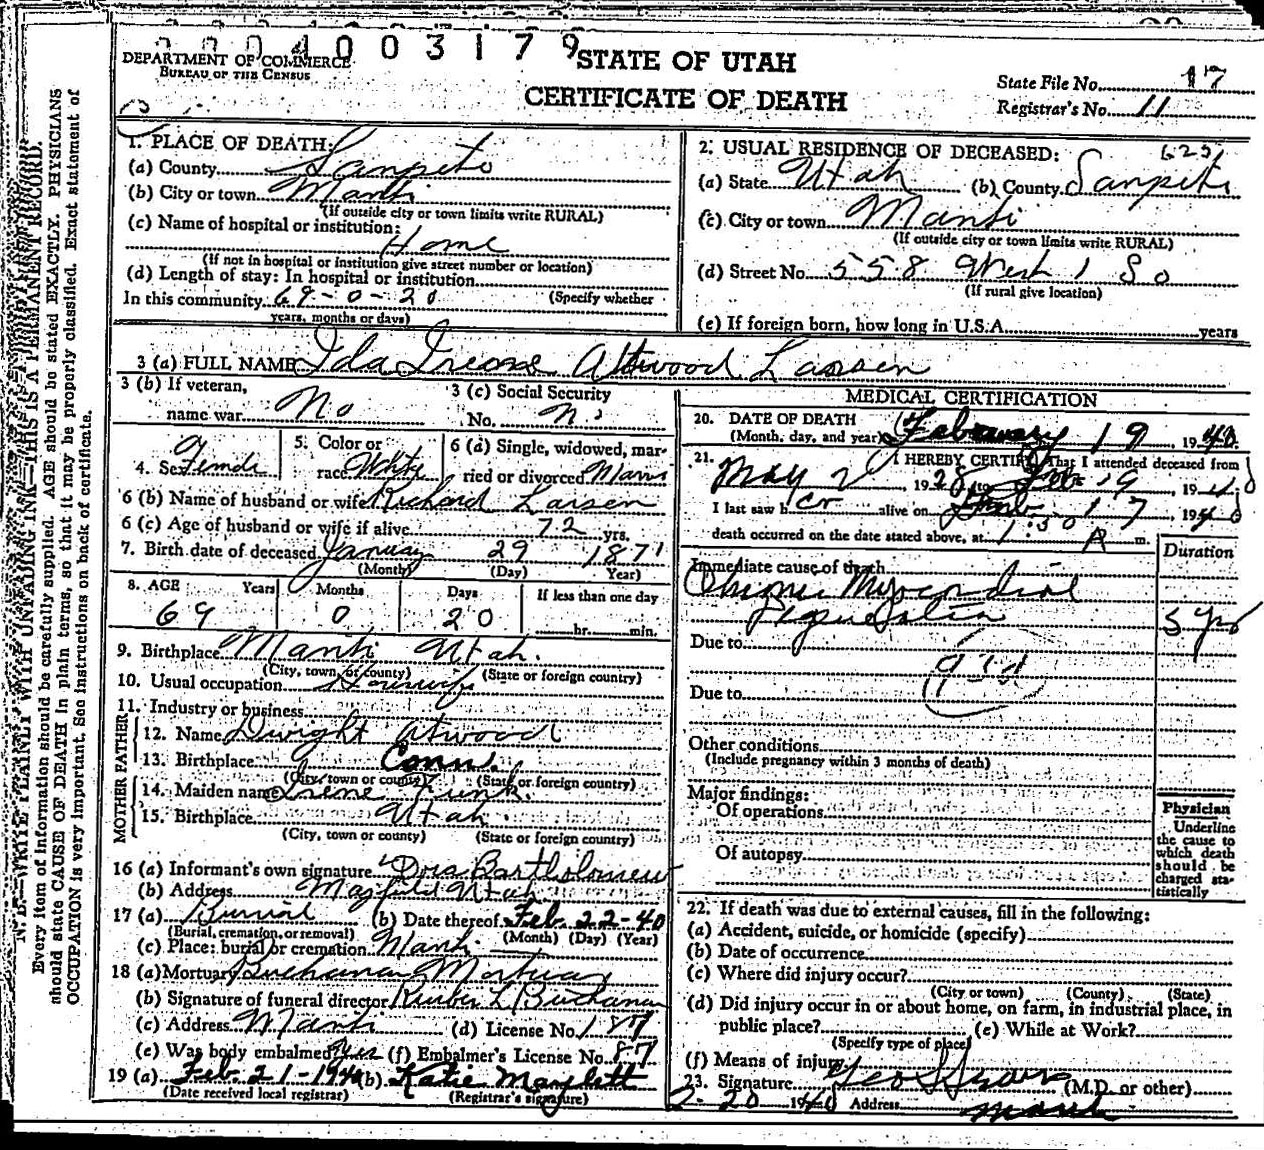 0 0 4 0 0 3 1 7 9
DEPARTMENT OF COMMERCE
BUREAU OF THE CENSUS
STATE OF UTAH
CERTIFICATE OF DEATH
State File No. 17
Registrar's No. 11
N. B.—WRITE PLAINLY WITH UNFADING INK—THIS IS A PERMANENT RECORD.
Every item of information should be carefully supplied. AGE should be stated EXACTLY. PHYSICIANS
should state CAUSE OF DEATH in plain terms, so that it may be properly classified. Exact statement of
OCCUPATION is very important. See instructions on back of certificate.
1. PLACE OF DEATH:
(a) County Sanpete
(b) City or town Manti
(If outside city or town limits write RURAL)
(c) Name of hospital or institution:
Home
(If not in hospital or institution give street number or location)
(d) Length of stay: In hospital or institution
In this community 69-0-20 (Specify whether
years, months or days)
2. USUAL RESIDENCE OF DECEASED:
(a) State Utah (b) County Sanpete
(c) City or town Manti
(If outside city or town limits write RURAL)
(d) Street No. 558 West 1 So
(If rural give location)
(e) If foreign born, how long in U.S.A. years
3 (a) FULL NAME Ida Irene Attwood Larsen
3 (b) If veteran,
name war No
3 (c) Social Security
No. No
4. Sex Female
5. Color or
race White
6 (a) Single, widowed, mar-
ried or divorced Marr
6 (b) Name of husband or wife Richard Larsen
6 (c) Age of husband or wife if alive 72 yrs.
7. Birth date of deceased January 29 1871
(Month) (Day) Year)
8. AGE Years Months Days If less than one day
69 0 20 hr. min.
9. Birthplace Manti Utah.
(City, town or county) (State or foreign country)
10. Usual occupation Housewife
11. Industry or business
FATHER
12. Name Dwight Atwood
13. Birthplace Conn.
(City, town or county) (State or foreign country)
MOTHER
14. Maiden name Irene Funk.
15. Birthplace Utah.
(City, town or county) (State or foreign country)
16 (a) Informant's own signature Dora Bartholomew
(b) Address Mayfield Utah
17 (a) Burial (b) Date thereof Feb. 22-40
(Burial, cremation, or removal) (Month) (Day) (Year)
(c) Place: burial or cremation Manti
18 (a) Mortuary Buchanan Mortuary
(b) Signature of funeral director Reuben L Buchanan
(c) Address Manti (d) License No. 187
(e) Was body embalmed? Yes (f) Embalmer's License No. 87
19 (a) Feb. 21-1940 (b) Katie Maylett
(Date received local registrar) (Registrar's signature)
MEDICAL CERTIFICATION
20. DATE OF DEATH
(Month, day, and year) February 19, 1940.
21. I HEREBY CERTIFY That I attended deceased from
May 2 1928 to Feb 19 1940
I last saw her alive on Feb 17, 1940
death occurred on the date stated above, at 1:30 A m.
Duration
Immediate cause of death
Chronic Myocardial
5 yrs
Due to
Due to
Other conditions
(Include pregnancy within 3 months of death)
Major findings:
Of operations
Of autopsy
Physician
Underline
the cause to
which death
should be
charged sta-
tistically
22. If death was due to external causes, fill in the following:
(a) Accident, suicide, or homicide (specify)
(b) Date of occurrence
(c) Where did injury occur?
(City or town) (County) (State)
(d) Did injury occur in or about home, on farm, in industrial place, in
public place? (e) While at Work?
(Specify type of place)
(f) Means of injury
23. Signature Geo L Sears (M.D. or other)
2-20 1940 Address Manti